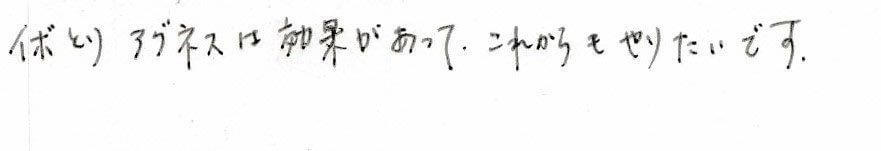 イボとり アグネスは効果があって、これからもやりたいです.